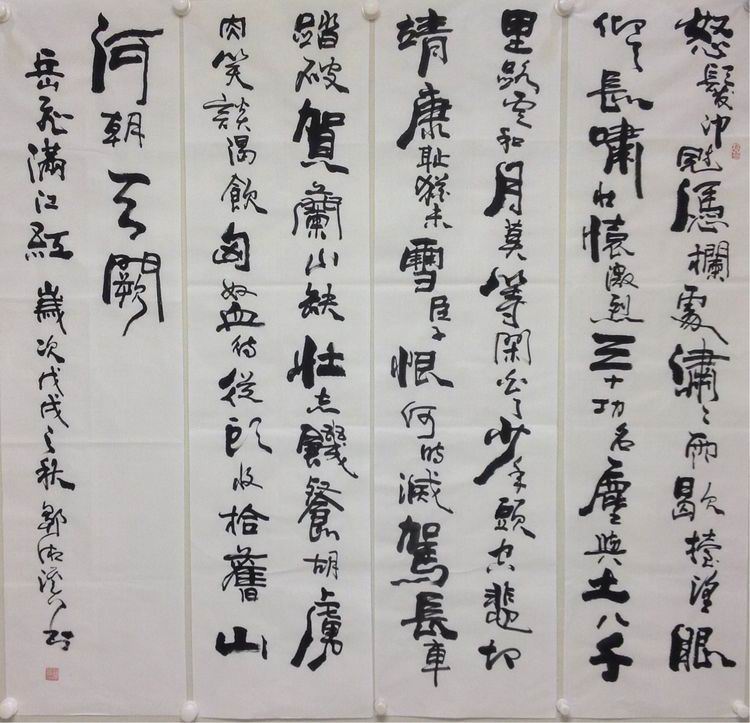 怒髮沖冠憑欄處瀟〻雨歇擡望眼
仰天長嘯壯懷激烈三十功名塵與土八千
里路雲和月莫等閑白了少年頭空悲切
靖康恥猶未雪臣子恨何時滅駕長車
踏破賀蘭山缺壯志饑餐胡虜
肉笑談渴飲匈奴血待從頭收拾舊山
河朝天闕
岳飛滿江紅 歲次戊戌之秋 鄭